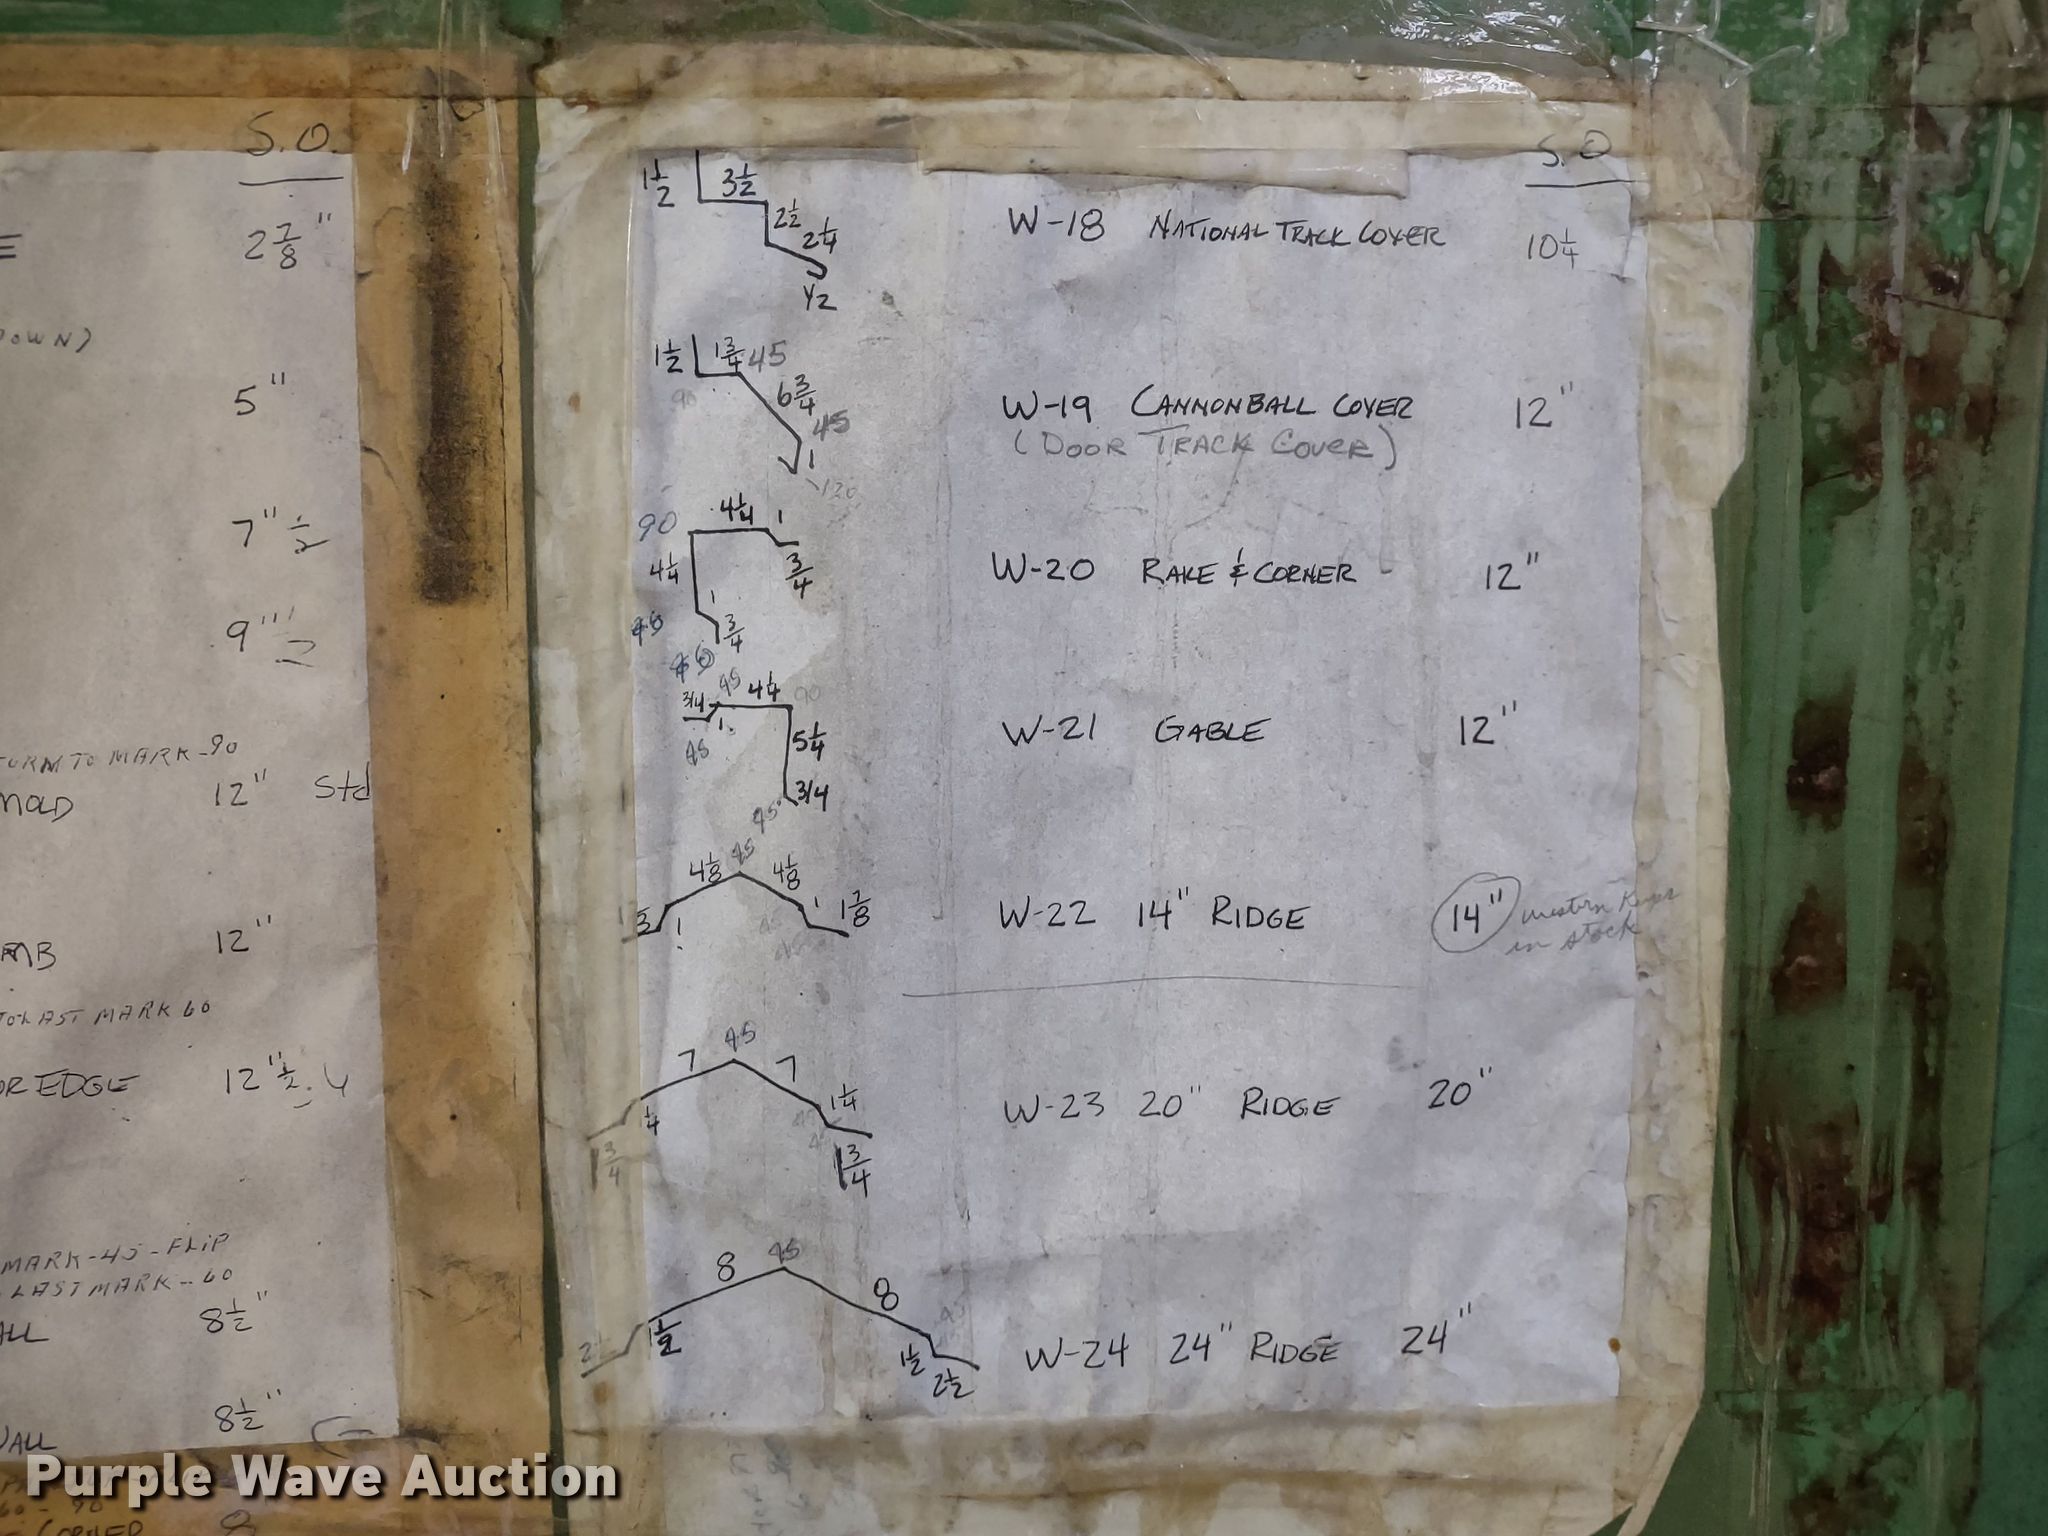 S.O.
E 2 7/8"
DOWN)
5"
7" 1/2
9"
TURN TO MARK-90
MOLD 12" Std
AMB 12"
TO LAST MARK 60
OR EDGE 12" 1/2
MARK-45-FLIP
LAST MARK-60
ALL 8 1/2"
WALL 8 1/2"
60-90
CORNER 8
S.O
1 1/2 3 1/2 2 1/2 2 1/4 1/2
W-18 NATIONAL TRACK COVER 10 1/4
1 1/2 1 3/4 45 6 3/4 45 90 1 120
W-19 CANNONBALL COVER 12"
(DOOR TRACK COVER)
90 4 1/4 1 3/4 4 1/4 1 3/4
W-20 RAKE & CORNER 12"
3/4 45 4 1/4 90 1 45 5 1/4 3/4 45°
W-21 GABLE 12"
4 1/8 45 4 1/8 1 1 7/8 1 45
W-22 14" RIDGE 14" western in stock
7 45 7 1/4 1 1/4 1 3/4 1 3/4
W-23 20" RIDGE 20"
8 45 8 1 1/2 1 1/2 2 1/2
W-24 24" RIDGE 24"
Purple Wave Auction